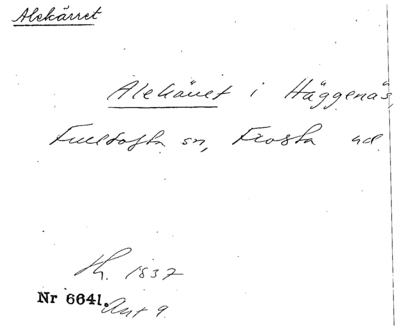 Alekärret
Alekärret i Häggenäs,
Fulltofta sn, Frosta hd
h. 1837
Nr 6641. Akt 9